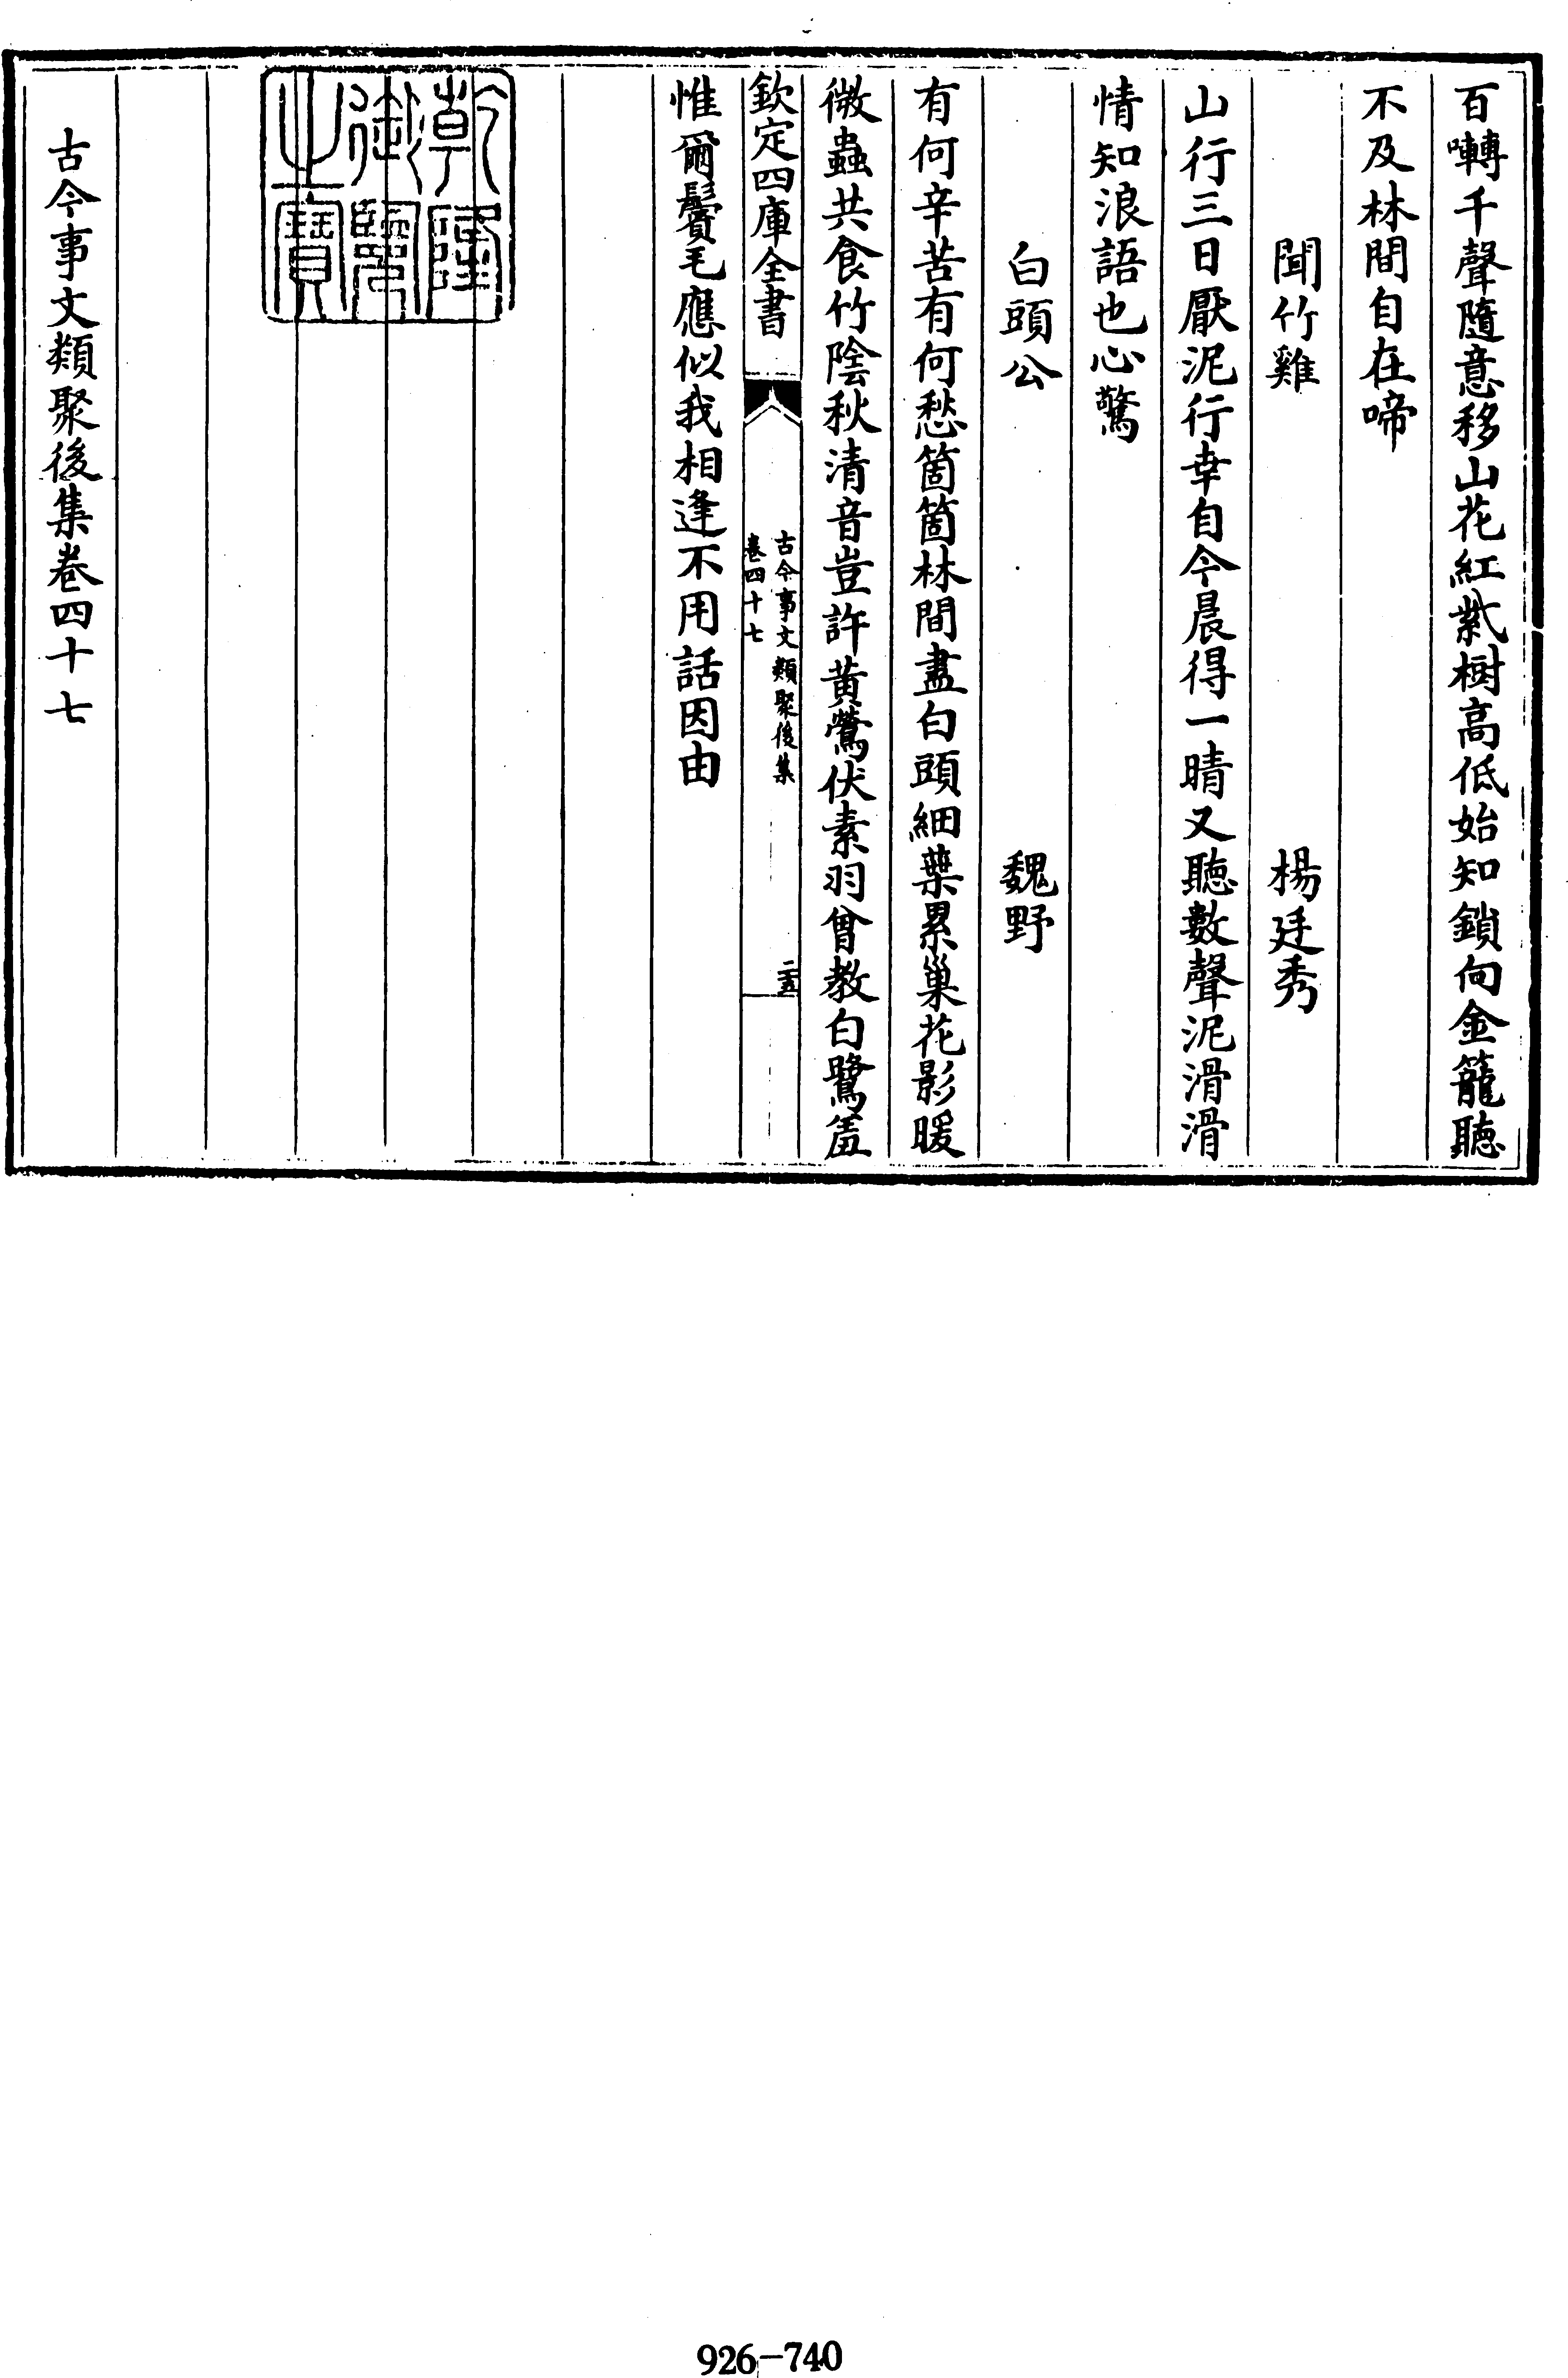 百囀千聲隨意移山花紅紫樹高低始知鎖向金籠聽
不及林間自在啼
聞竹雞 楊廷秀
山行三日厭泥行幸自今晨得一晴又聽數聲泥滑滑
情知浪語也心驚
白頭公 魏野
有何辛苦有何愁箇箇林間盡白頭細葉累巢花影暖
微蟲共食竹陰秋清音豈許黃鶯伏素羽曾教白鷺羞
欽定四庫全書
古今事文類聚後集
卷四十七
二十五
惟爾鬢毛應似我相逢不用話因由
乾隆
御覽
之寶
古今事文類聚後集卷四十七
926-740